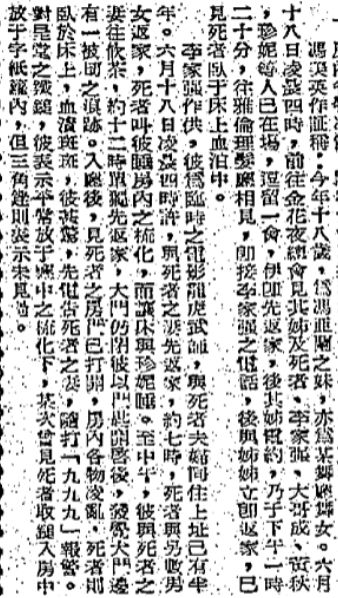 馮英英作証稱:今年十八歲,爲馮亜蘭之妹,亦爲某舞廳舞女。六月
十八日凌晨四時,前往金花夜總會見其姊及死者、李家强、大哥成、黃秋
、珍妮等人已在場,逗留一會,伊卽先返家,後其姊電約,乃于下午一時
二十分,往雅倫理髮廳相見,卽接李家强之電話,後與姊姊立卽返家,已
見死者臥于床上血泊中。
李家强作供,彼爲臨時之電影龍虎武師,與死者夫婦同住上址已有半
年。六月十八日凌晨四時許,與死者之妻先返家,約七時,死者與另數男
女返家,死者叫彼睡房內之梳化,而讓床與珍妮睡。至中午,彼與死者之
妻往飲茶,約十二時單獨先返家,大門仍閉彼以門匙開啓後,發覺大門邊
有一被 之痕跡。入廳後,見死者之房門已打開,房內各物凌亂,死者則
臥於床上,血漬斑斑,彼甚驚,先電告死者之妻,隨打「九九九」報警。
對呈堂之鐵鎚,彼表示平常放于廳中之梳化下,某次曾見死者取鎚入房中
放于字紙籮內,但三角銼則表示未見過。